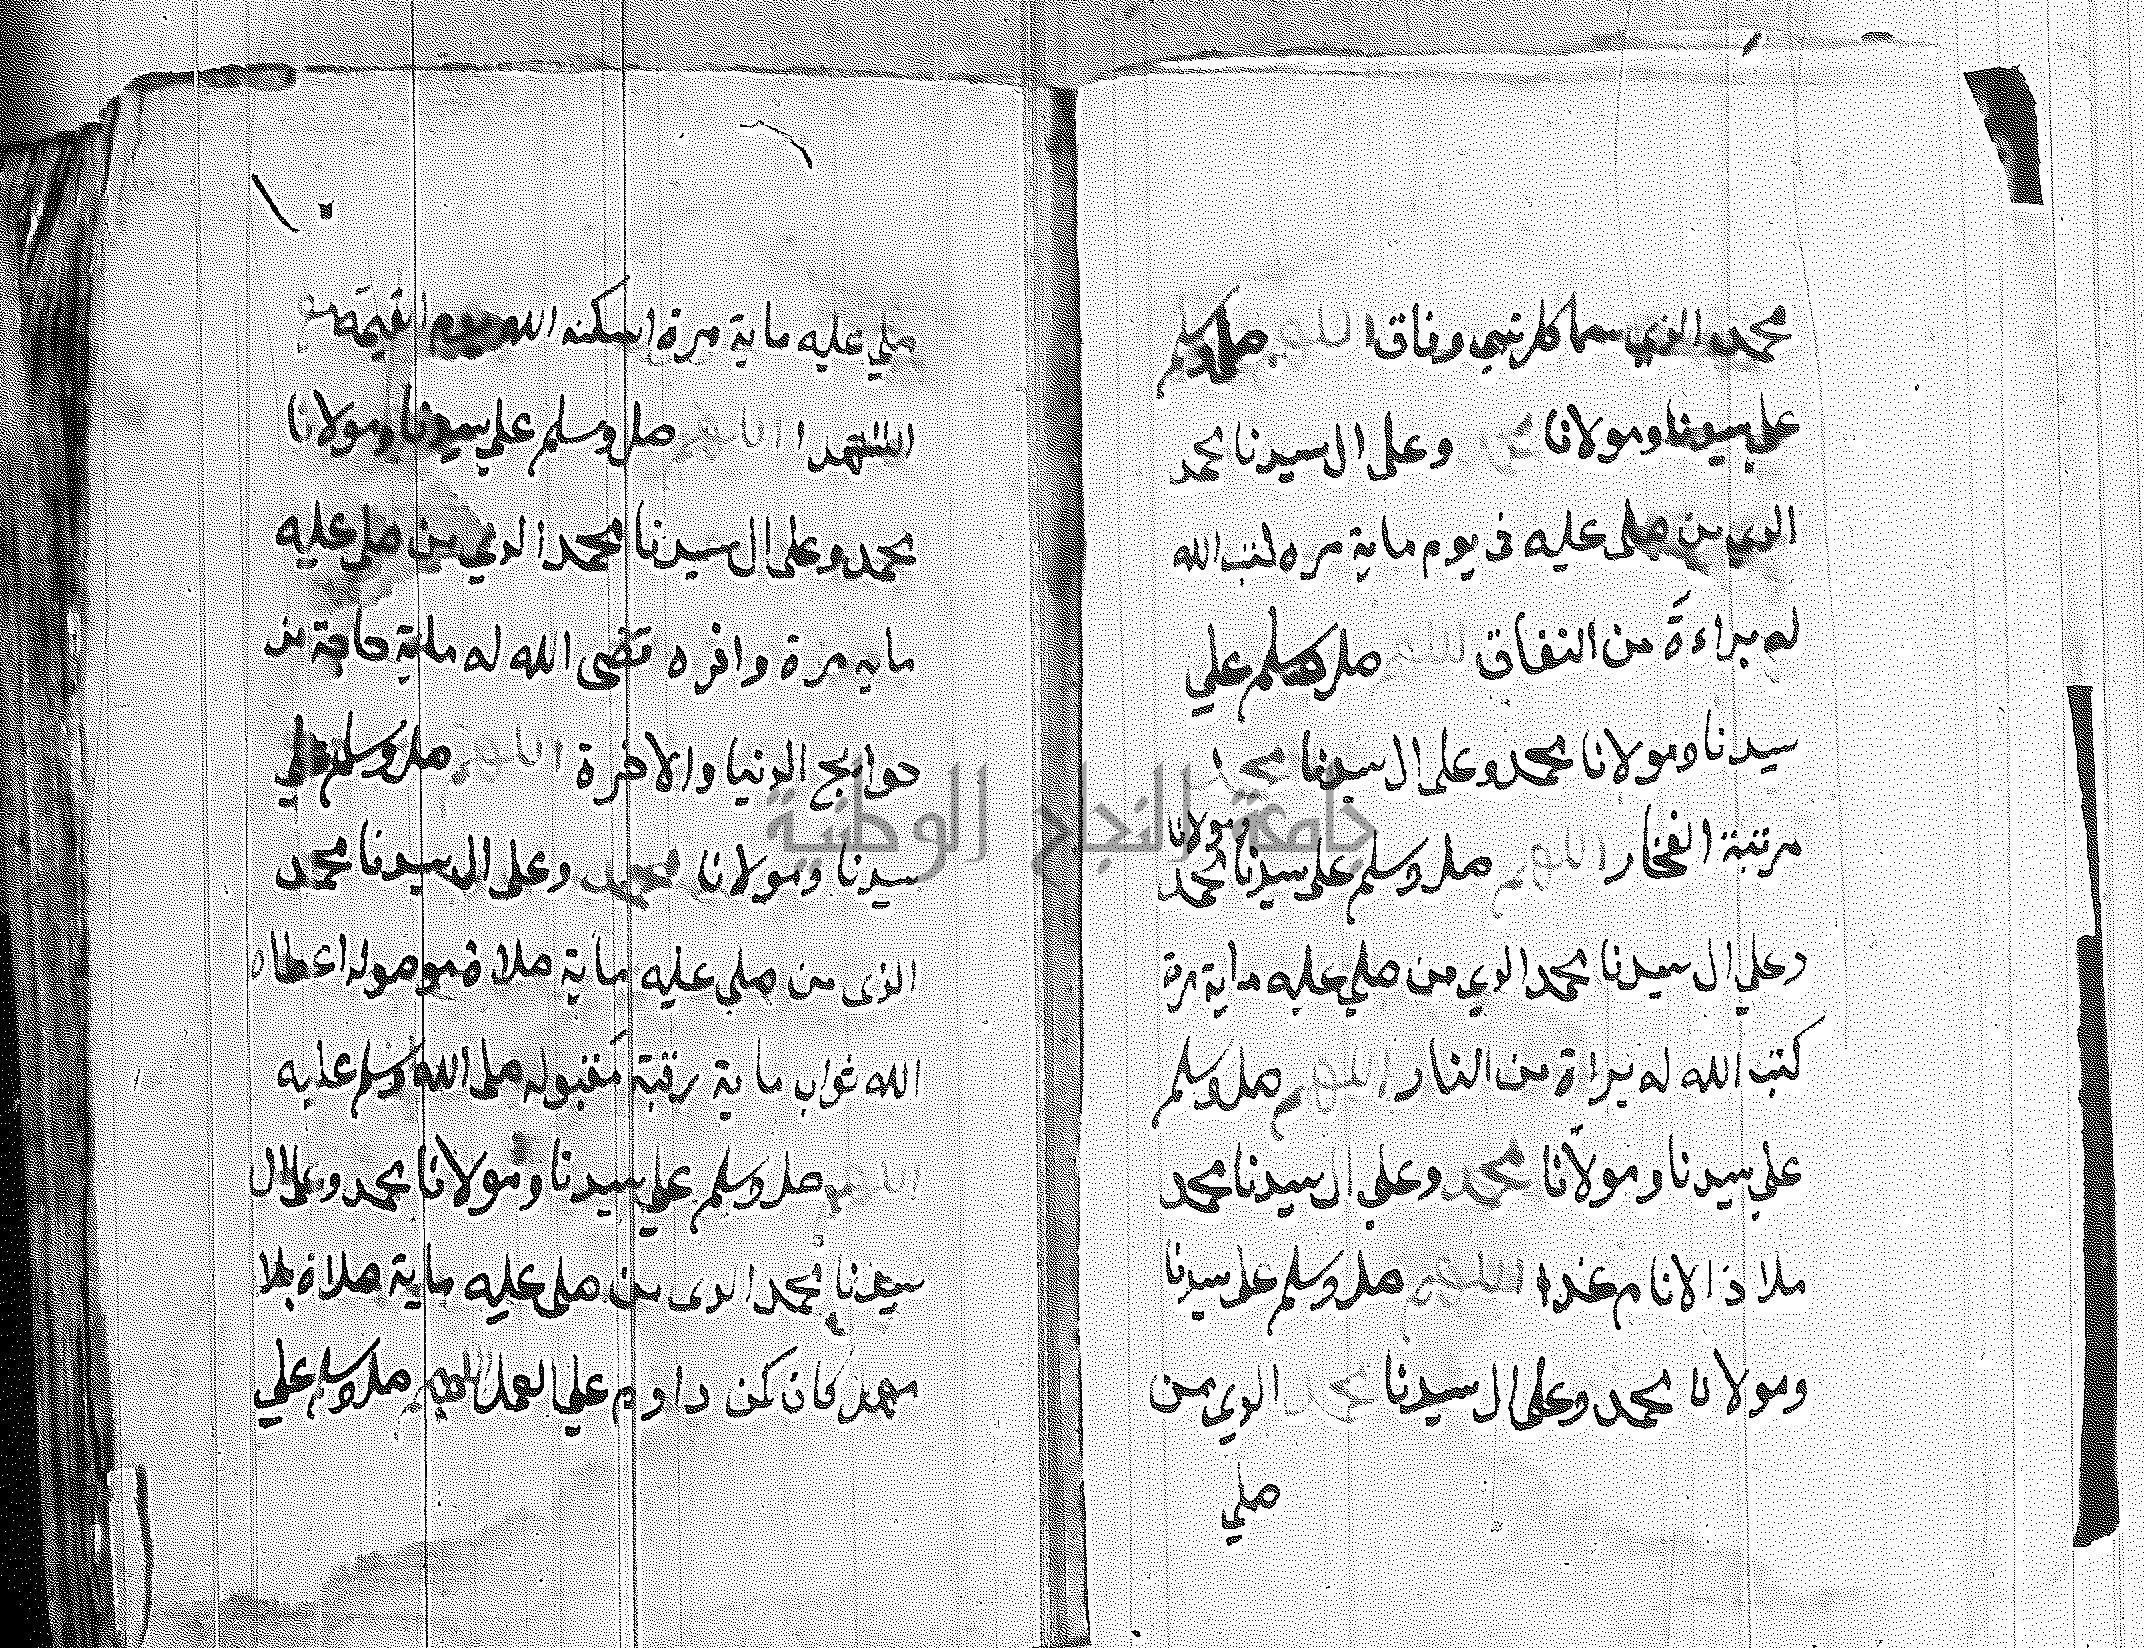 محمد الذي سما كل نبي وفاق اللهم صل وسلم
على سيدنا ومولانا محمد وعلى ال سيدنا محمد
الذي من صلى عليه في يوم ماية مره كتب الله
له براءة من النفاق اللهم صل وسلم علي
سيدنا ومولانا محمد وعلى ال سيدنا محمد
مرتبة الفخار اللهم صل وسلم على سيدنا ومولانا محمد
وعلي ال سيدنا محمد الذي من صلي عليه ماية مرة
كتب الله له براة من النار اللهم صل وسلم
علي سيدنا ومولانا محمد وعلي ال سيدنا محمد
ملاذ الانام غدا اللهم صل وسلم على سيدنا
ومولانا محمد وعلى ال سيدنا محمد الذي من
صلي
صلي عليه ماية مرة اسكنه الله يوم القيمة مع
الشهدا اللهم صل وسلم علي سيدنا ومولانا
محمد وعلى ال سيدنا محمد الذي من صل عليه
مايه مرة وافره قضى الله له ماية حاجة من
حوايج الدنيا والاخرة اللهم صل وسلم علي
سيدنا ومولانا محمد وعلى ال سيدنا محمد
الذى من صلى عليه ماية صلاة موصوله اعطاه
الله ثواب ماية رقبة مقبوله صلى الله وسلم عليه
اللهم صل وسلم علي سيدنا ومولانا محمد وعلى ال
سيدنا محمد الذى من صلى عليه ماية صلاة بلا
مهد كان كمن داوم علي العمل اللهم صل وسلم علي
جامعة النجاح الوطنية